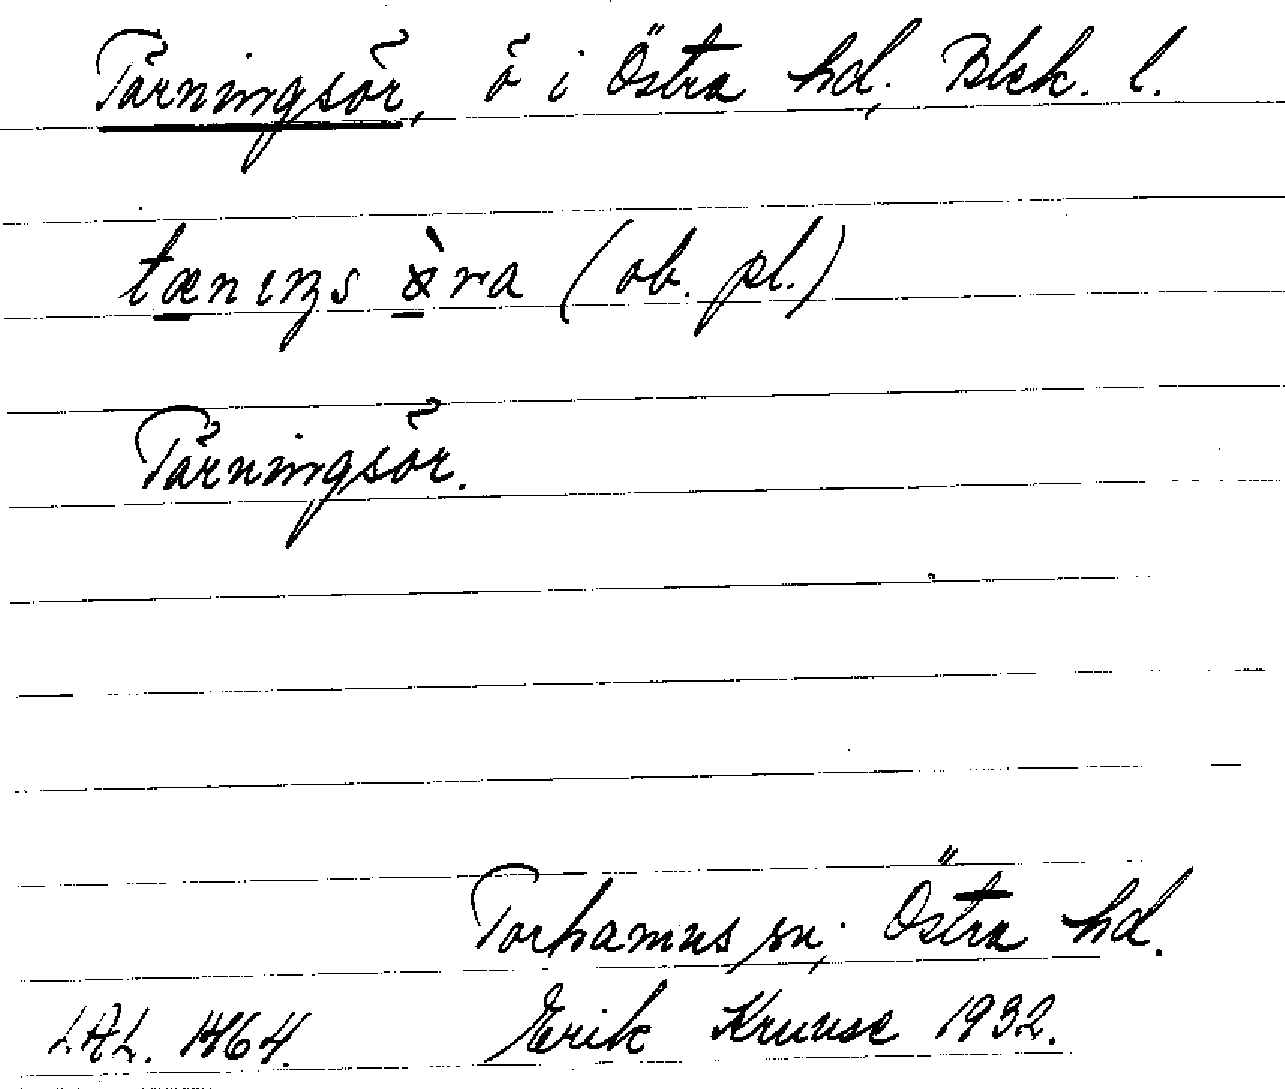 Tärningsör, ö i Östra hd, Blek. l.
tænings ö̀ra (ob. pl.)
Tärningsör.
Torhamns sn, Östra hd.
LAL. 1464. Erik Kruuse 1932.